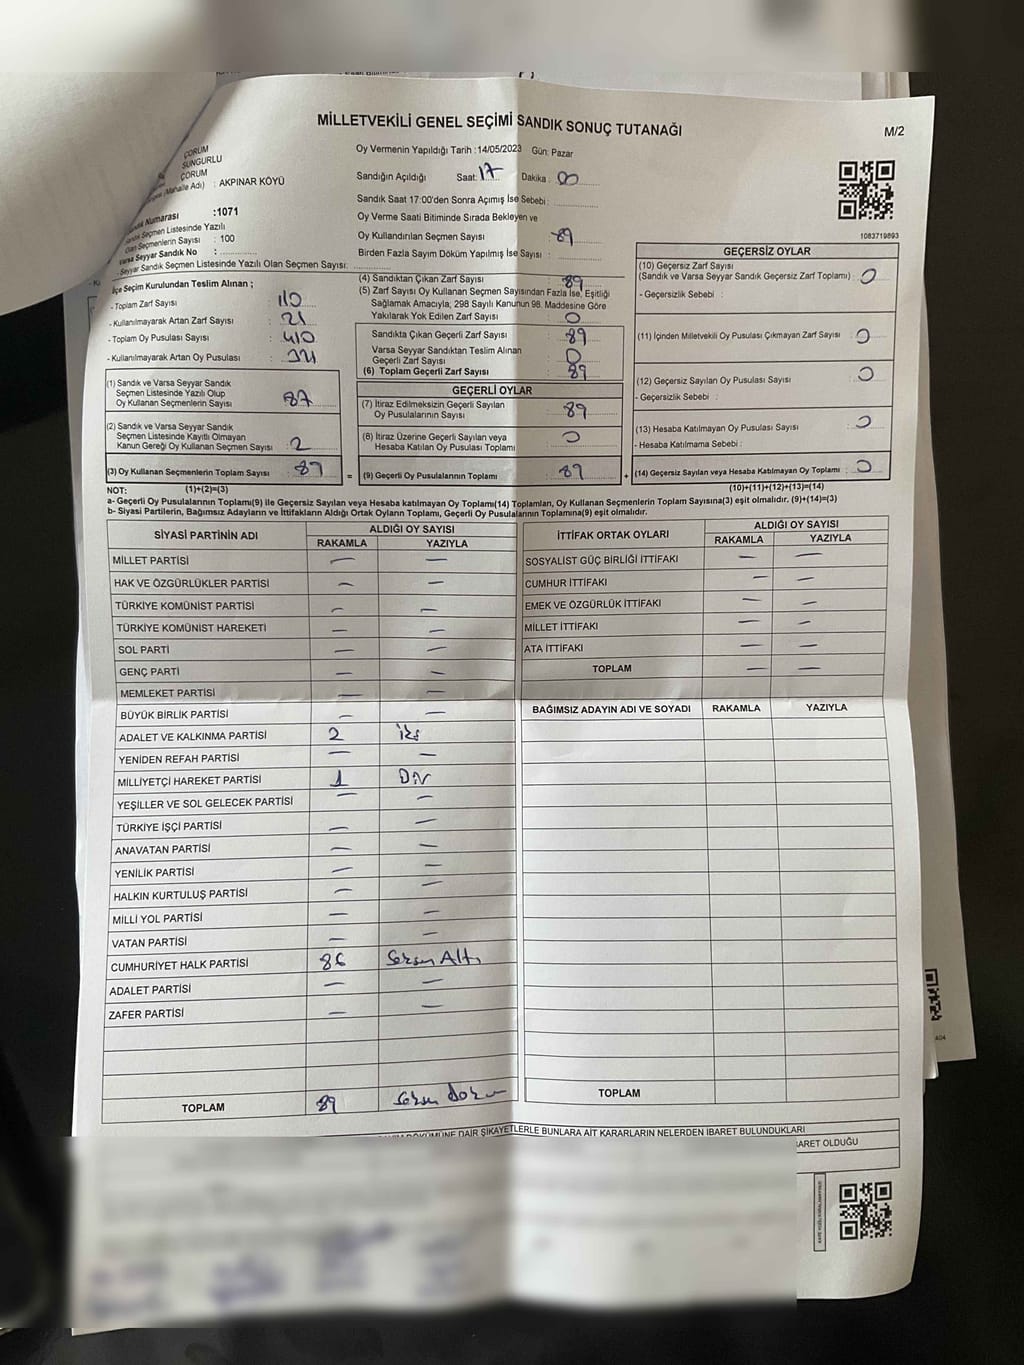 MİLLETVEKİLİ GENEL SEÇİMİ SANDIK SONUÇ TUTANAĞI
M/2
ÇORUM
SUNGURLU
ÇORUM
(Mahalle Adı) : AKPINAR KÖYÜ
Oy Vermenin Yapıldığı Tarih :14/05/2023 Gün: Pazar
Sandığın Açıldığı Saat: 17 Dakika : 00
Sandık Saat 17:00'den Sonra Açılmış İse Sebebi :
Oy Verme Saati Bitiminde Sırada Bekleyen ve
Oy Kullandırılan Seçmen Sayısı : 89
Birden Fazla Sayım Döküm Yapılmış İse Sayısı :
1083719893
Sandık Numarası :1071
Sandık Seçmen Listesinde Yazılı
Olan Seçmenlerin Sayısı : 100
Varsa Seyyar Sandık No :
- Seyyar Sandık Seçmen Listesinde Yazılı Olan Seçmen Sayısı:
İlçe Seçim Kurulundan Teslim Alınan ;
- Toplam Zarf Sayısı : 110
- Kullanılmayarak Artan Zarf Sayısı : 21
- Toplam Oy Pusulası Sayısı : 410
- Kullanılmayarak Artan Oy Pusulası : 321
(1) Sandık ve Varsa Seyyar Sandık
Seçmen Listesinde Yazılı Olup
Oy Kullanan Seçmenlerin Sayısı : 87
(2) Sandık ve Varsa Seyyar Sandık
Seçmen Listesinde Kayıtlı Olmayan
Kanun Gereği Oy Kullanan Seçmen Sayısı : 2
(3) Oy Kullanan Seçmenlerin Toplam Sayısı : 89
(4) Sandıktan Çıkan Zarf Sayısı : 89
(5) Zarf Sayısı Oy Kullanan Seçmen Sayısından Fazla İse, Eşitliği
Sağlamak Amacıyla, 298 Sayılı Kanunun 98. Maddesine Göre
Yakılarak Yok Edilen Zarf Sayısı : 0
Sandıkta Çıkan Geçerli Zarf Sayısı : 89
Varsa Seyyar Sandıktan Teslim Alınan
Geçerli Zarf Sayısı : 0
(6) Toplam Geçerli Zarf Sayısı : 89
GEÇERLİ OYLAR
(7) İtiraz Edilmeksizin Geçerli Sayılan
Oy Pusulalarının Sayısı : 89
(8) İtiraz Üzerine Geçerli Sayılan veya
Hesaba Katılan Oy Pusulası Toplamı : 0
= (9) Geçerli Oy Pusulalarının Toplamı : 89 +
GEÇERSİZ OYLAR
(10) Geçersiz Zarf Sayısı
(Sandık ve Varsa Seyyar Sandık Geçersiz Zarf Toplamı) : 0
- Geçersizlik Sebebi :
(11) İçinden Milletvekili Oy Pusulası Çıkmayan Zarf Sayısı : 0
(12) Geçersiz Sayılan Oy Pusulası Sayısı : 0
- Geçersizlik Sebebi :
(13) Hesaba Katılmayan Oy Pusulası Sayısı : 0
- Hesaba Katılmama Sebebi :
(14) Geçersiz Sayılan veya Hesaba Katılmayan Oy Toplamı : 0
NOT: (1)+(2)=(3)
(10)+(11)+(12)+(13)=(14)
a- Geçerli Oy Pusulalarının Toplamı(9) ile Geçersiz Sayılan veya Hesaba katılmayan Oy Toplamı(14) Toplamları, Oy Kullanan Seçmenlerin Toplam Sayısına(3) eşit olmalıdır. (9)+(14)=(3)
b- Siyasi Partilerin, Bağımsız Adayların ve İttifakların Aldığı Ortak Oyların Toplamı, Geçerli Oy Pusulalarının Toplamına(9) eşit olmalıdır.
SİYASİ PARTİNİN ADI ALDIĞI OY SAYISI
RAKAMLA YAZIYLA
MİLLET PARTİSİ — —
HAK VE ÖZGÜRLÜKLER PARTİSİ — —
TÜRKİYE KOMÜNİST PARTİSİ — —
TÜRKİYE KOMÜNİST HAREKETİ — —
SOL PARTİ — —
GENÇ PARTİ — —
MEMLEKET PARTİSİ — —
BÜYÜK BİRLİK PARTİSİ — —
ADALET VE KALKINMA PARTİSİ 2 iki
YENİDEN REFAH PARTİSİ — —
MİLLİYETÇİ HAREKET PARTİSİ 1
YEŞİLLER VE SOL GELECEK PARTİSİ — —
TÜRKİYE İŞÇİ PARTİSİ — —
ANAVATAN PARTİSİ — —
YENİLİK PARTİSİ — —
HALKIN KURTULUŞ PARTİSİ — —
MİLLİ YOL PARTİSİ — —
VATAN PARTİSİ — —
CUMHURİYET HALK PARTİSİ 86 Seksen Altı
ADALET PARTİSİ — —
ZAFER PARTİSİ — —
TOPLAM 89 Seksen dokuz
İTTİFAK ORTAK OYLARI ALDIĞI OY SAYISI
RAKAMLA YAZIYLA
SOSYALİST GÜÇ BİRLİĞİ İTTİFAKI — —
CUMHUR İTTİFAKI — —
EMEK VE ÖZGÜRLÜK İTTİFAKI — —
MİLLET İTTİFAKI — —
ATA İTTİFAKI — —
TOPLAM — —
BAĞIMSIZ ADAYIN ADI VE SOYADI RAKAMLA YAZIYLA
TOPLAM
DÖKÜMÜNE DAİR ŞİKAYETLERLE BUNLARA AİT KARARLARIN NELERDEN İBARET BULUNDUKLARI
OLDUĞU